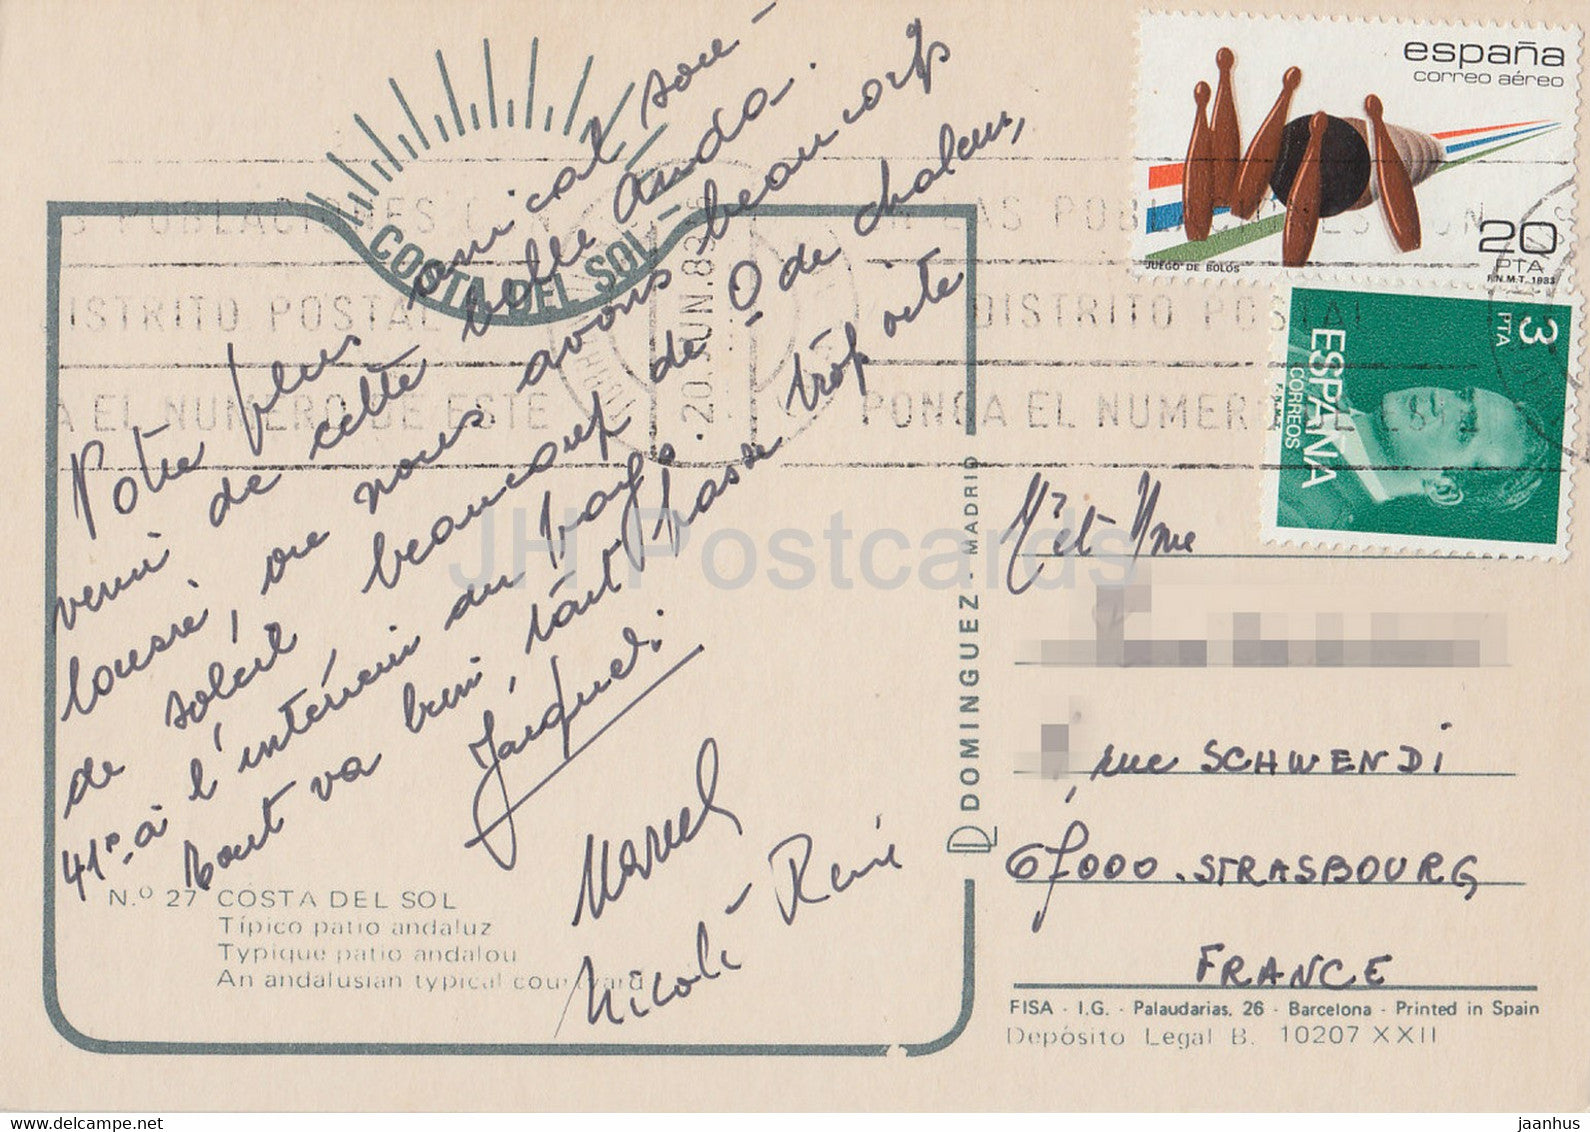 Notre plus amical sou-
venir de cette belle Anda.
lousie, où nous avons beaucoup
de soleil beaucoup de de chaleur,
41° à l'intérieur du pays.
tout va bien, tout passe trop vite
Jacques.
Marcel
Nicole René
COSTA DEL SOL
N.º 27 COSTA DEL SOL
Típico patio andaluz
Typique patio andalou
An andalusian typical courtyard
DOMINGUEZ - MADRID
españa
correo aéreo
20
PTA
JUEGO DE BOLOS
F.N.M.T. 1983
3
PTA
ESPAÑA
CORREOS
F.N.M.T.
POBLACIONES
DISTRITO POSTAL
PONGA EL NUMERO DE ESTE
20 JUN. 83
EN LAS POBLACIONES CON
DISTRITO POSTAL
PONGA EL NUMERO DE ESTE
M. et Mme
, rue SCHWENDI
67000 . STRASBOURG
FRANCE
FISA - I.G. - Palaudarias, 26 - Barcelona - Printed in Spain
Depósito Legal B. 10207 XXII
JH Postcards
https://www.delcampe.net
jaanhus